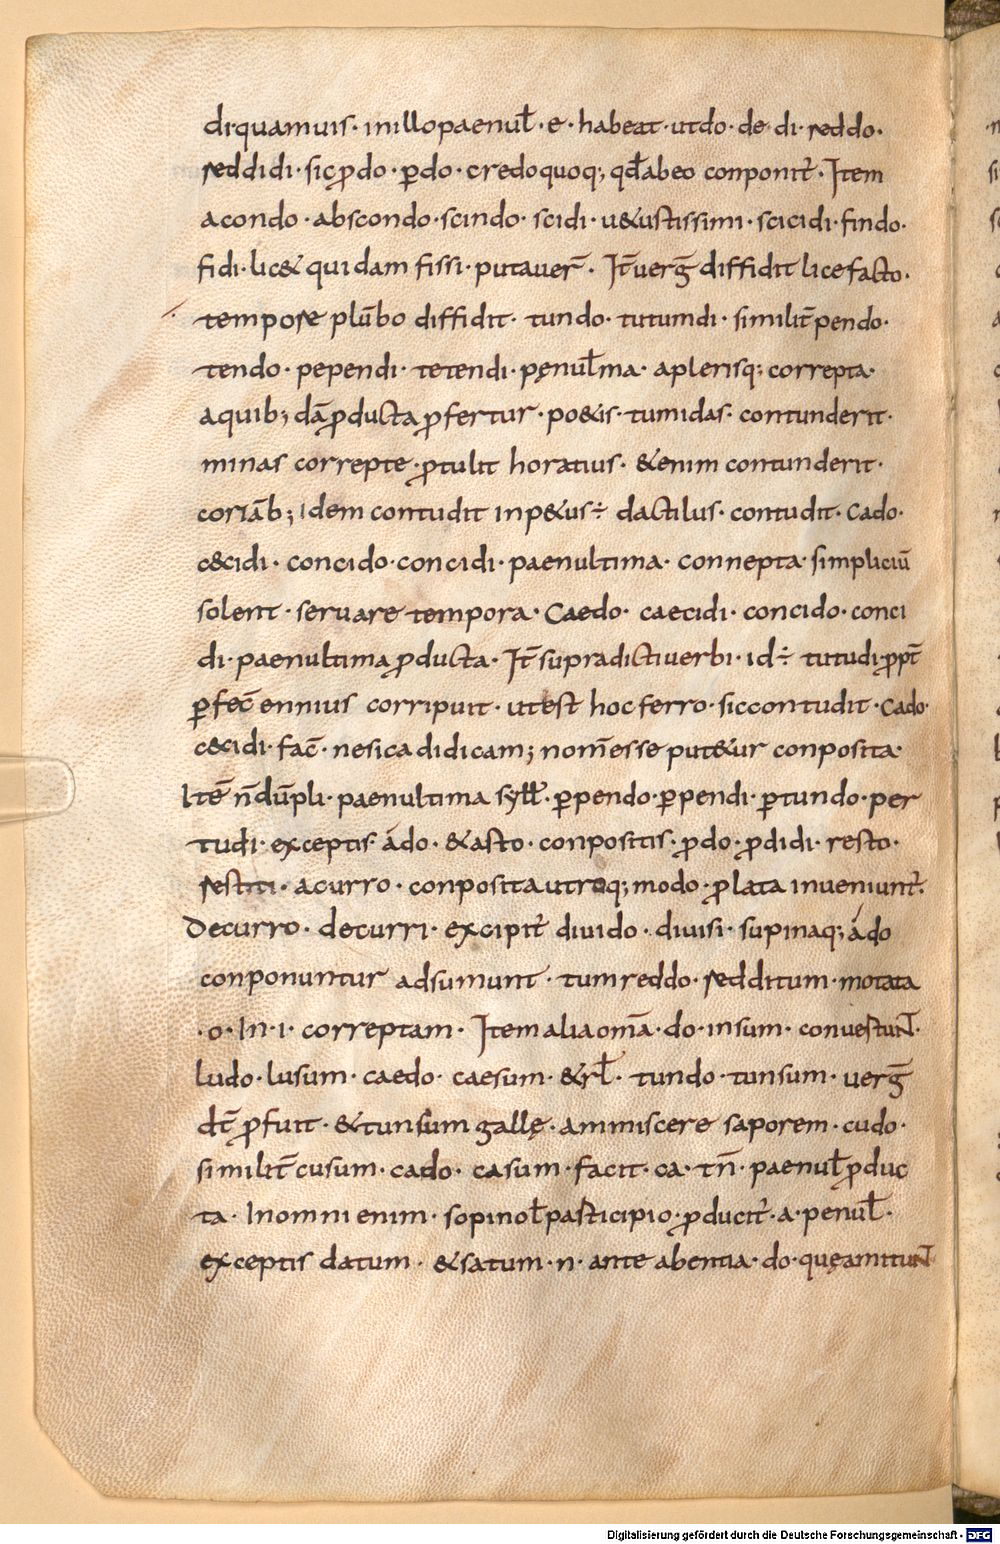 di quamuis · in illo paenul̄ · e · habeat · ut do · de di · reddo ·
reddidi · sic p̄do · ꝑdo · credo quoq; qd̄ abeo conponit̄ · Item
a condo · abscondo · scindo · scidi · u&ustissimi · scicidi · findo ·
fidi · lic& quidam fissi · putauer̄ · It̄ uerḡ diffidit lice facto ·
tempore plūbo diffidit · tundo · tutumdi · similit̄ pendo ·
tendo · pependi · tetendi · pęnul̄ma · a plerisq; correpta ·
a quib; dā p̄ducta p̄fertur · po&is · tumidas · contunderit ·
minas correpte · p̄tulit horatius · &enim contunderit ·
coriāb; Idem contudit in p&us ÷ dactilus · contudit · Cado ·
c&cidi · concido · concidi · paenultima · connepta · simpliciū
solent · seruare tempora · Caedo · caecidi · concido · conci
di · paenultima p̄ducta · It̄ supradicti uerbi · id ÷ tutudi · p̄pt̄
ꝑfec̄ ennius corripuit · ut est hoc ferro · sic contudit · Cado ·
c&cidi · fac̄ · ne sica didicam; nom̄ esse put&ur conposita ·
Itē n̄ dūpli · paenultima syll̄ · ꝑpendo · ꝑpendi · ꝑtundo · per
tudi · exceptis · ádo · & asto · conpositis · p̄do · p̄didi · resto ·
restiti · a curro · conposita utroq; modo · p̄lata inueniunt̄ ·
Decurro · decurri · excipit̄ diuido · diuisi · supinaq; ádo
conponuntur adsumunt · tum reddo · redditum · motata
· o · In · i · correptam · Item alia omā · do · in sum · conuestunT ·
ludo · lusum · caedo · caesum · & rl̄ · tundo · tunsum · uerḡ
dc̄ p̄fuit · & tunsum gallę · ammiscere saporem · cudo ·
similit̄ cusum · cado · casum · facit · ca · tn̄ · paenul̄ p̄duc
ta · In omni enim · sopinol̄ pasticipio · p̄ducit̄ · a · penul̄ ·
exceptis datum · & satum · n · ante abentia · do · quę amittunT
Digitalisierung gefördert durch die Deutsche Forschungsgemeinschaft - DFG